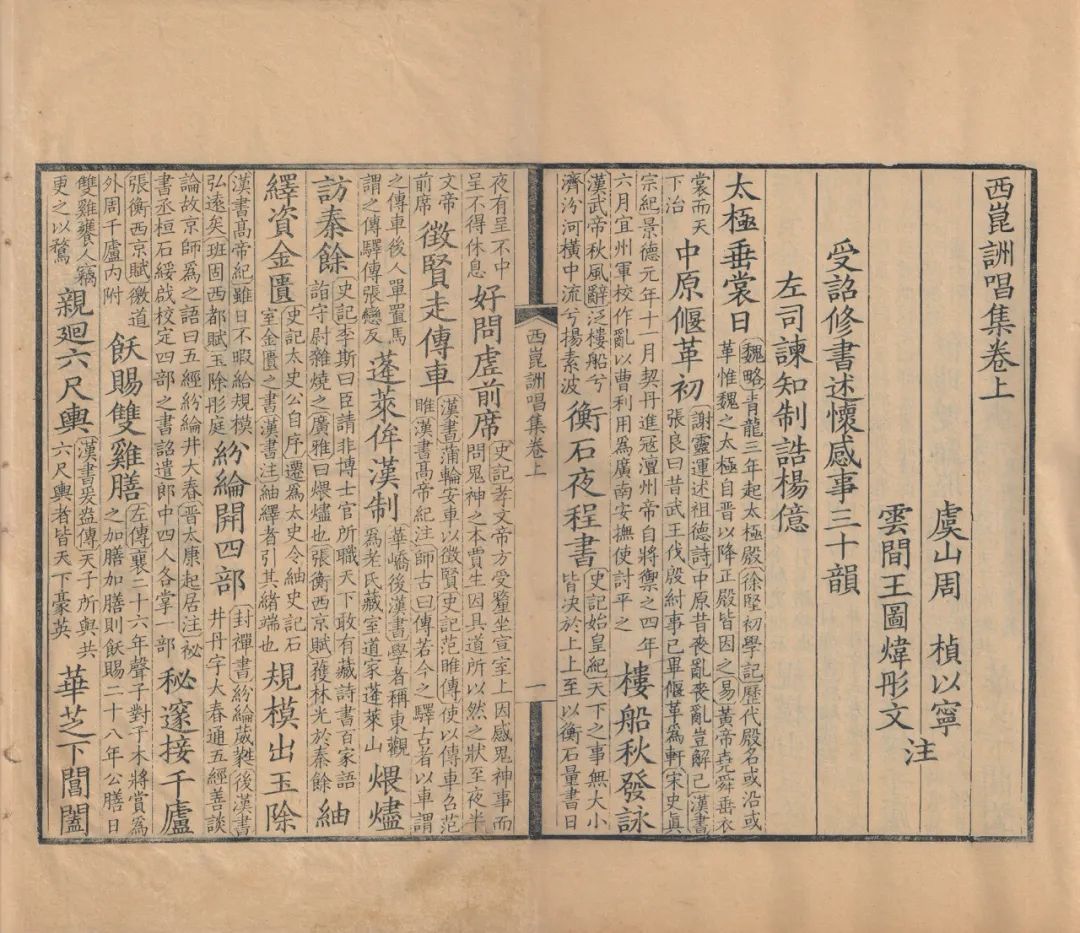 西崑詶唱集卷上
虞山周　楨以寧
雲間王圖煒彤文
注
受詔修書述懷感事三十韻
左司諫知制誥楊億
太極垂裳日
魏略青龍三年起太極殿徐堅初學記歷代殿名或沿或
革惟魏之太極自晉以降正殿皆因之易黃帝堯舜垂衣
裳而天
下治
中原偃革初
謝靈運述祖德詩中原昔喪亂喪亂豈解已漢書
張良曰昔武王伐殷紂事已畢偃革爲軒宋史眞
宗紀景德元年十一月契丹進冦澶州帝自將禦之四年
六月宜州軍校作亂以曹利用爲廣南安撫使討平之
樓船秋發詠
漢武帝秋風辭泛樓船兮
濟汾河橫中流兮揚素波
衡石夜程書
史記始皇紀天下之事無大小
皆决於上上至以衡石量書日
西崑詶唱集卷上
一
夜有呈不中
呈不得休息
好問虛前席
史記孝文帝方受釐坐宣室上因感鬼神事而
問鬼神之本賈生因具道所以然之狀至夜半
文帝
前席
徵賢走傳車
漢書蒲輪安車以徵賢史記范雎傳使以傳車召范
雎漢書高帝紀注師古曰傳若今之驛古者以車謂
之傳車後人單置馬
謂之傳驛傳張孌反
蓬萊侔漢制
華嶠後漢書學者稱東觀
爲老氏藏室道家蓬萊山
煨燼
訪秦餘
史記李斯曰臣請非博士官所職天下敢有藏詩書百家語
詣守尉雜燒之廣雅曰煨燼也張衡西京賦獲林光於秦餘
紬
繹資金匱
史記太史公自序遷爲太史令紬史記石
室金匱之書漢書注紬繹者引其緒端也
規模出玉除
漢書高帝紀雖日不暇給規模
弘遠矣班固西都賦玉除彤庭
紛綸開四部
封禪書紛綸葳蕤後漢書
井丹字大春通五經善談
論故京師爲之語曰五經紛綸井大春晉太康起居注祕
書丞桓石綏啟校定四部之書詔遣郎中四人各掌一部
秘邃接千廬
張衡西京賦徼道
外周千廬內附
飫賜雙雞膳
左傳襄二十六年聲子對子木將賞爲
之加膳加膳則飫賜二十八年公膳日
雙雞饔人竊
更之以鶩
親廻六尺輿
漢書爰盎傳天子所與共
六尺輿者皆天下豪英
華芝下閶闔